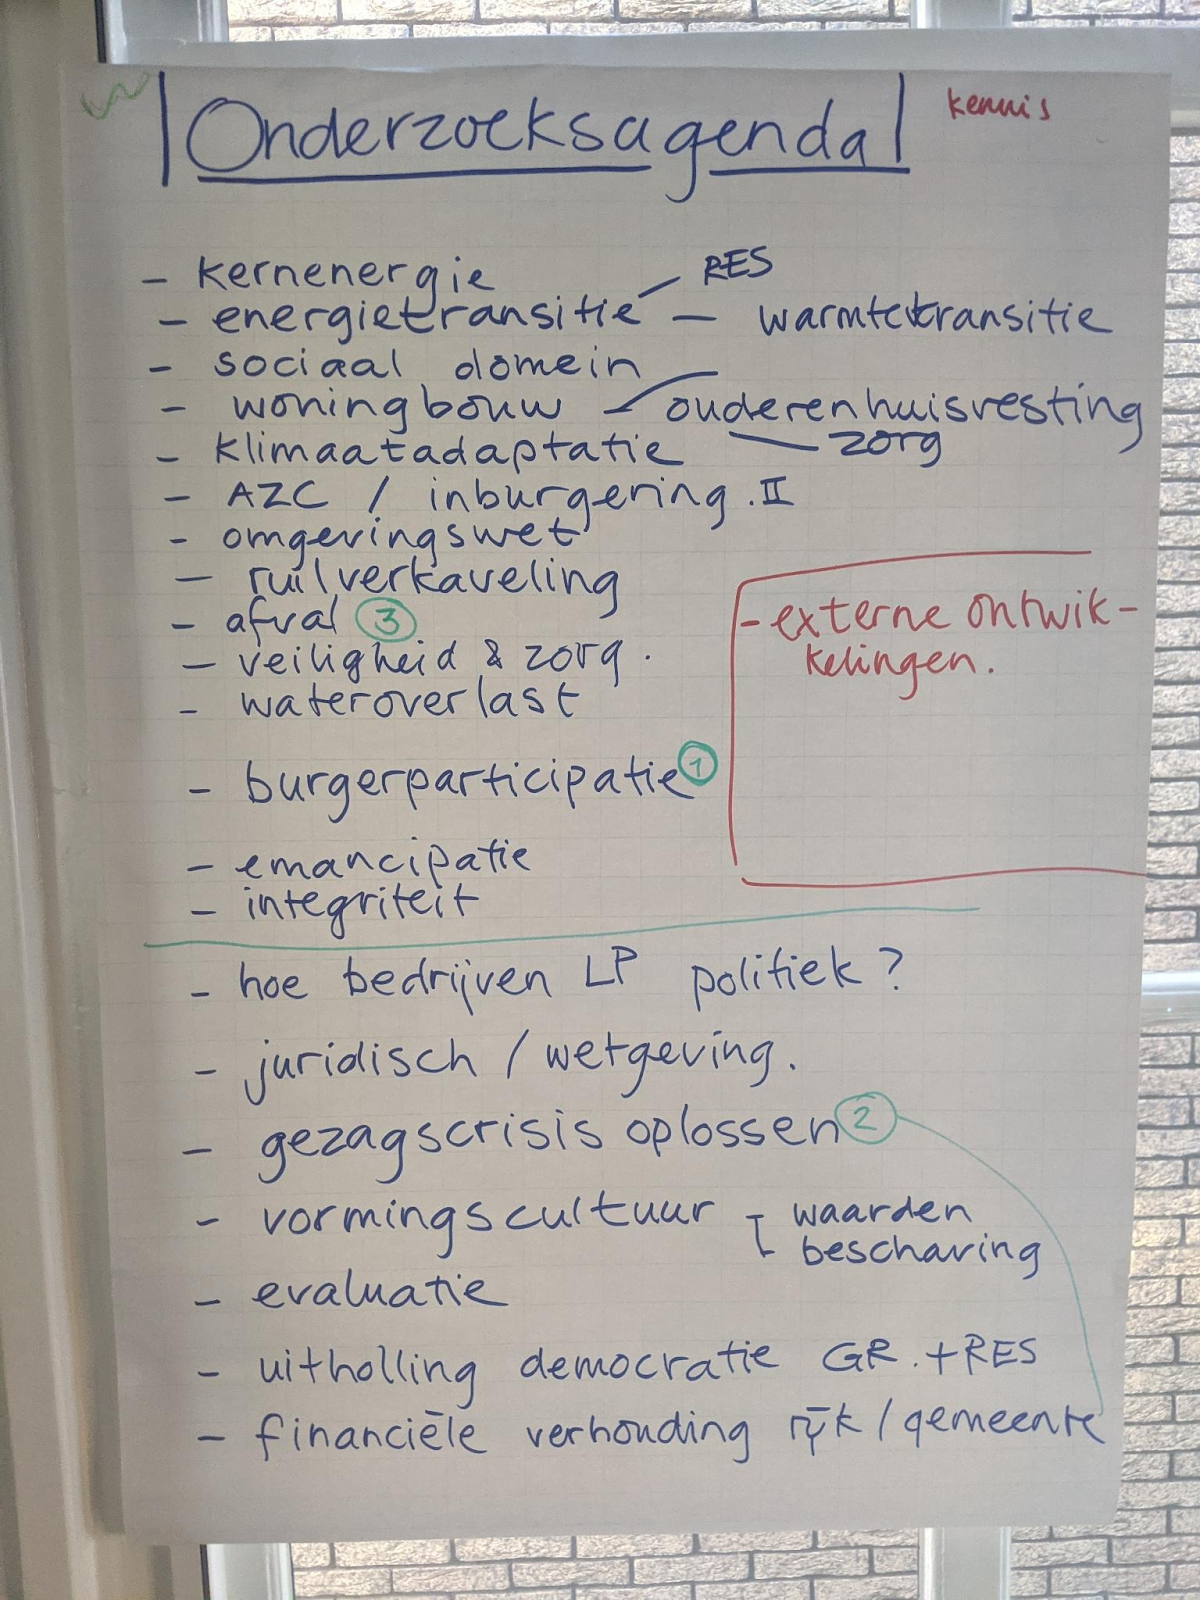 Onderzoeksagenda
kennis
- kernenergie
- energietransitie - RES
- warmtetransitie
- sociaal domein
- woningbouw - ouderenhuisvesting
zorg
- klimaatadaptatie
- AZC / inburgering. II
- omgevingswet
- ruilverkaveling
- afval 3
- veiligheid & zorg.
- wateroverlast
- externe ontwik-
kelingen.
- burgerparticipatie 1
- emancipatie
- integriteit
- hoe bedrijven LP politiek?
- juridisch / wetgeving.
- gezagscrisis oplossen 2
- vormingscultuur - waarden
beschaving
- evaluatie
- uitholling democratie GR. + RES
- financiële verhouding rijk / gemeente